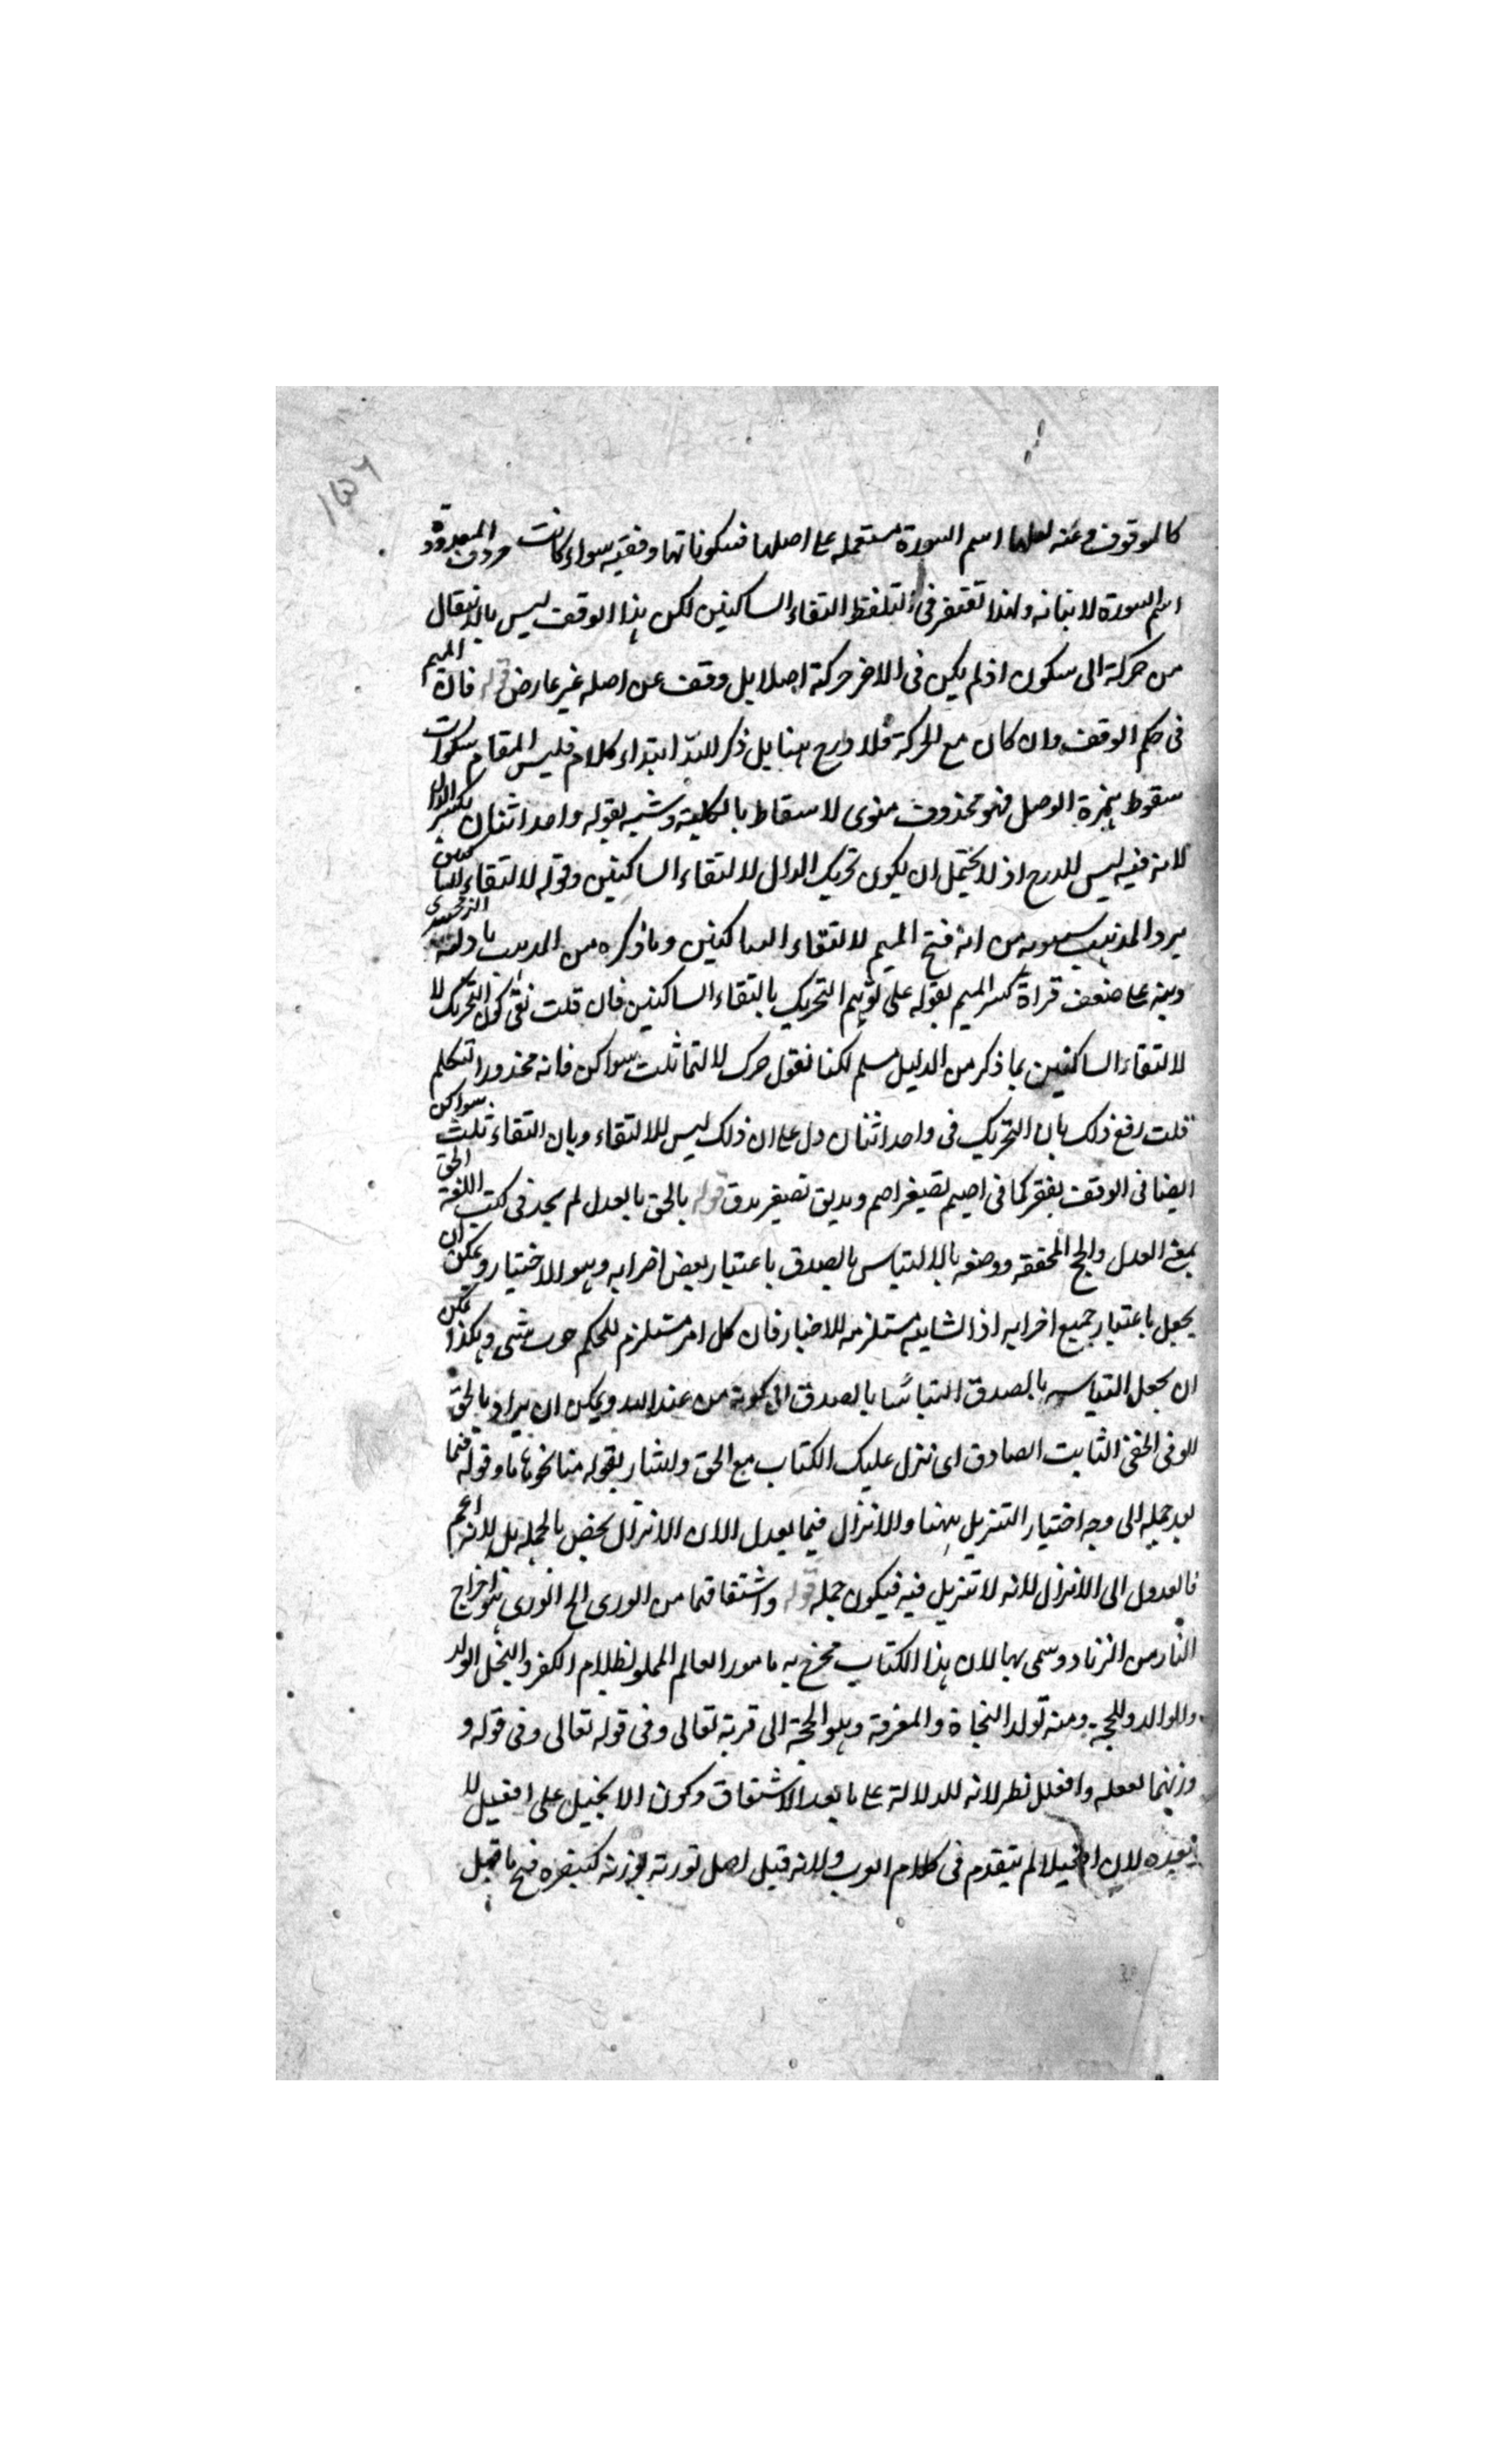 كالموقوف عنه اسم السورة مستعمله على اصلها فسكوناتها وقفية سواء كانت حروف المعدودة
اسم السورة لا بنائه ولهذا تغتفر فى التلفظ التقاء الساكنين لكن هذا الوقف ليس بالانتقال
من حركة الى سكون اذ لم يكن فى الاخر حركة اصلا بل وقف عن اصله غير عارض قوله فان الميم
فى حكم الوقف وان كان مع الحركة فلا درج هنا بل ذكر ابتداء كلام فليس المقام
سقوط همزة الوصل فهو محذوف منوى لا سقاط بالكلية وشبه بقوله واحد اثنان بكسر الدال
لانه فيه ليس للدرج اذ لا يحتمل ان يكون تحريك الدال لالتقاء الساكنين وقوله لالتقاء الساكنين
يرد المذهب سيبويه من انه فتح الميم لالتقاء الساكنين وما ذكره من الزمخشرى
ونبه على ضعف قراة كسر الميم بقوله على توهم التحريك بالتقاء الساكنين فان قلت نفى كون التحريك لا
لالتقاء الساكنين بما ذكر من الدليل مسلم لكنا نقول حرك لالتقا ثلث سواكن فانه محذور التكلم
قلت دفع ذلك بان التحريك فى واحد اثنان دل على ان ذلك ليس للالتقاء وبان التقاء ثلث سواكن
ايضا فى الوقف يغتفر كما فى اصيم تصغير اصم ومديق تصغير مدق قوله بالحق بالعدل لم يجد فى كتب اللغة الحق
بمعنى العدل والحج المحققه ووصفه بالالتباس بالصدق باعتبار بعض اخرايه وهو الاختيار ويمكن ان
يجعل باعتبار جميع اخرايه اذ الشايبه مستلزمه للاخبار فان كل امر مستلزم للحكم شى وهكذا يمكن
ان يجعل التباسه بالصدق التباسًا بالصدق الى كونه من عند الله ويمكن ان يراد بالحق
الثابت الصادق اى نزل عليك الكتاب مع الحق وليشار بقوله وقوله فيما
بعد جمله الى وجه اختيار التنزيل ههنا والانزال فيما بعد لا لان الانزال يخص بالجمله بل لانه اعم
فالعدول الى الانزال لانه لا تنزيل فيه فيكون جمله قوله واشتقاقهما من الورى الخ الورى هو اخراج
النار من الزناد وسمى بها لان هذا الكتاب مخرج به ما مور العالم المملو بظلام الكفر والنجل الولد
والوالد ومنه تولد النجاة والمعرفة وهو الحجة الى قربة تعالى وفى قوله تعالى وفى قوله و
وزنهما بفعله وافعيل نظر لانه للدلالة على ما بعد الاشتقاق وكون الانجيل على افعيل لا
يعده لان افعيلا لم يتقدم فى كلام العرب ولانه قيل اصل تورته فتح ما قبل